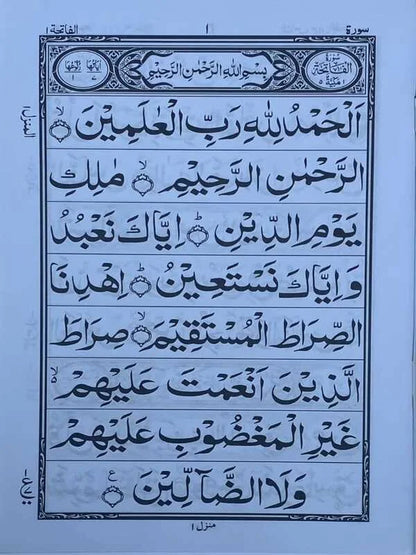 سورة ١ الفاتحة ١
سورة الفاتحة مكية ٥ بِسْمِ اللهِ الرَّحْمٰنِ الرَّحِيْمِ اٰيَاتُهَا ٧ رُكُوْعُهَا ١
اَلْحَمْدُ لِلّٰهِ رَبِّ الْعٰلَمِيْنَ ۙ
الرَّحْمٰنِ الرَّحِيْمِ ۙ مٰلِكِ
يَوْمِ الدِّيْنِ ؕ اِيَّاكَ نَعْبُدُ
وَاِيَّاكَ نَسْتَعِيْنُ ؕ اِهْدِنَا
الصِّرَاطَ الْمُسْتَقِيْمَ ۙ صِرَاطَ
الَّذِيْنَ اَنْعَمْتَ عَلَيْهِمْ ۙ
غَيْرِ الْمَغْضُوْبِ عَلَيْهِمْ
وَلَا الضَّآلِّيْنَ ع
المنزل ١
منزل ١